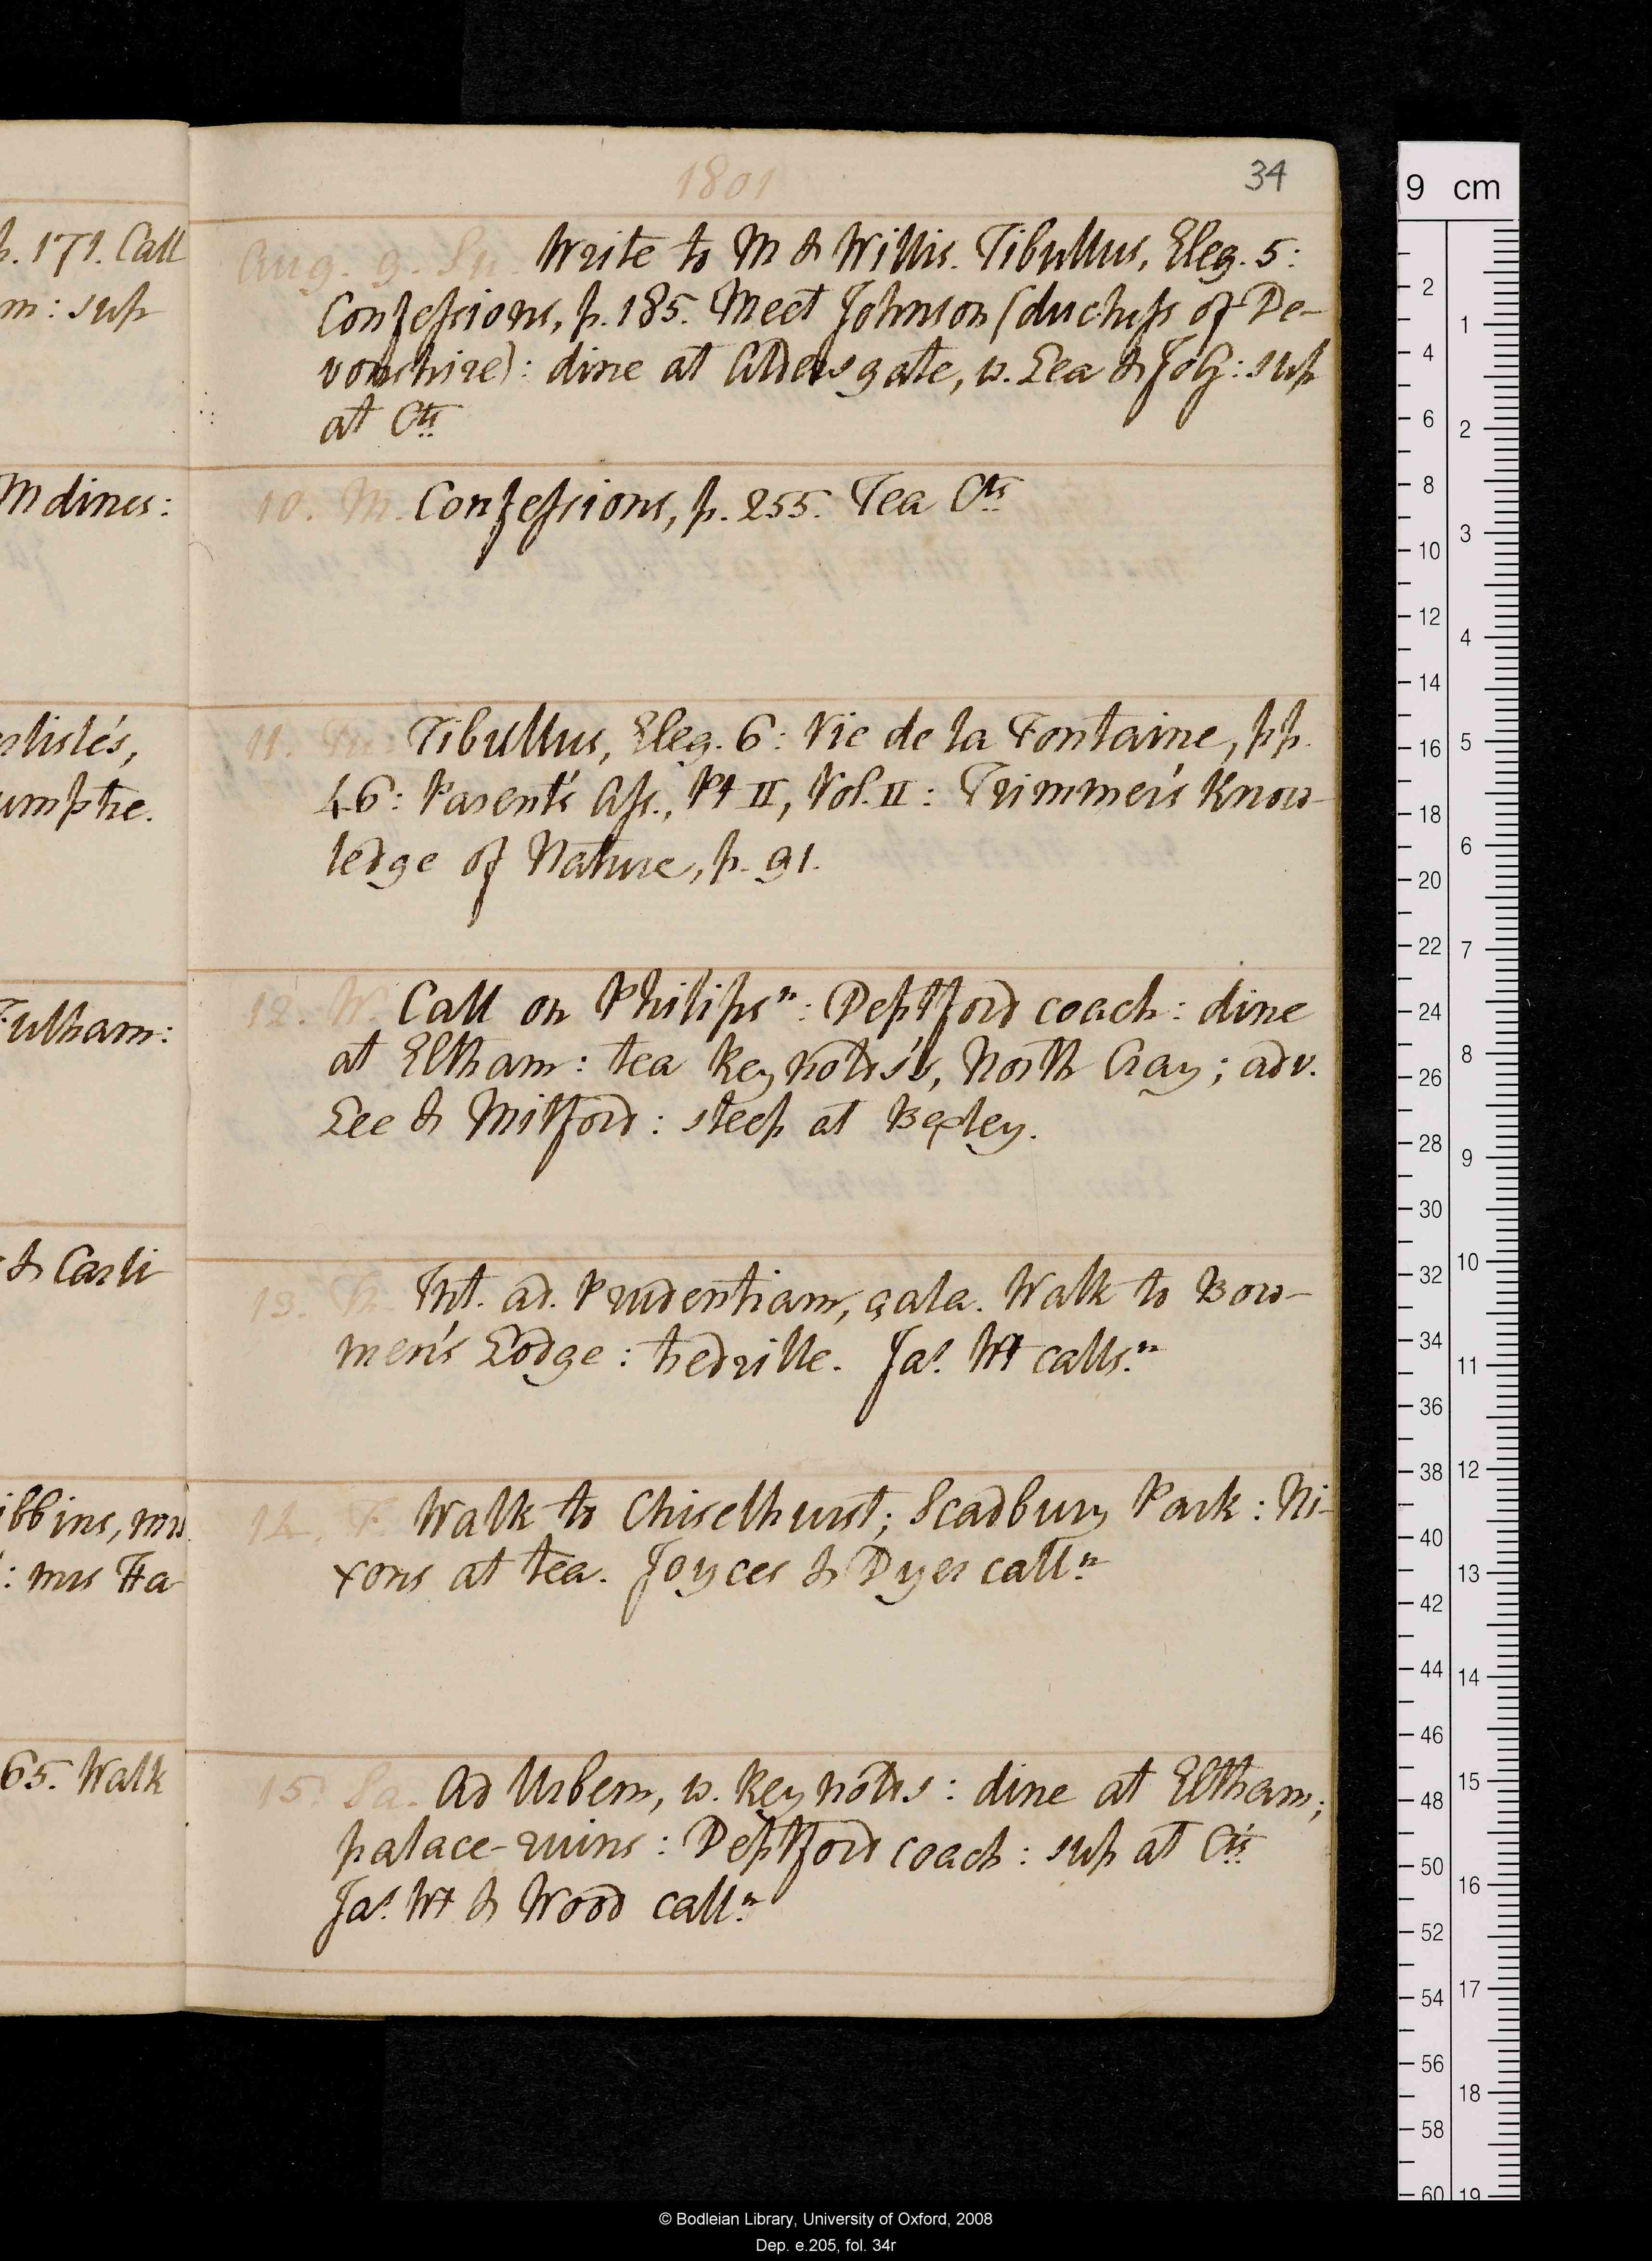 p. 171. Call
m: sup
M dines:
umphre.
Fulham:
& Carli
ibbins, mrs
: mrs Ha
65. Walk
1801
34
Aug. 9. Su. Write to M & Willis. Tibullus, Eleg. 5:
Confessions, p. 185. Meet Johnson (duchess of De-
vonshire): dine at Aldersgate, w. Lea & : sup
at Cts
10. M. Confessions, p. 255. Tea Cts
11. Tu. Tibullus, Eleg. 6: Vie de la Fontaine, pp.
46: Parent's Ass., Pt II, Vol. II: Trimmer's Know-
ledge of Nature, p. 91.
12. W. Call on Philips n: Deptford coach: dine
at Eltham: tea Reynolds's, North Cray; adv.
Lee & Mitford: sleep at Bexley.
13. Th. Int. ad. Prudentiam, gala. Walk to Bow-
men's Lodge: tredrille. Jas. Wt calls. n
14. F. Walk to Chiselhurst; Scadbury Park: Ni-
xons at tea. Joyces & Dyer call n
15. Sa. Ad Urbem, w. Reynolds: dine at Eltham;
palace-ruins: Deptford coach: sup at Cts
Jas. Wt & Wood call. n
9 cm
2
4
6
8
10
12
14
16
18
20
22
24
26
28
30
32
34
36
38
40
42
44
46
48
50
52
54
56
58
60
1
2
3
4
5
6
7
8
9
10
11
12
13
14
15
16
17
18
19
© Bodleian Library, University of Oxford, 2008
Dep. e.205, fol. 34r